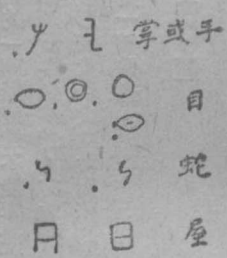 掌或手
目
蛇
屋